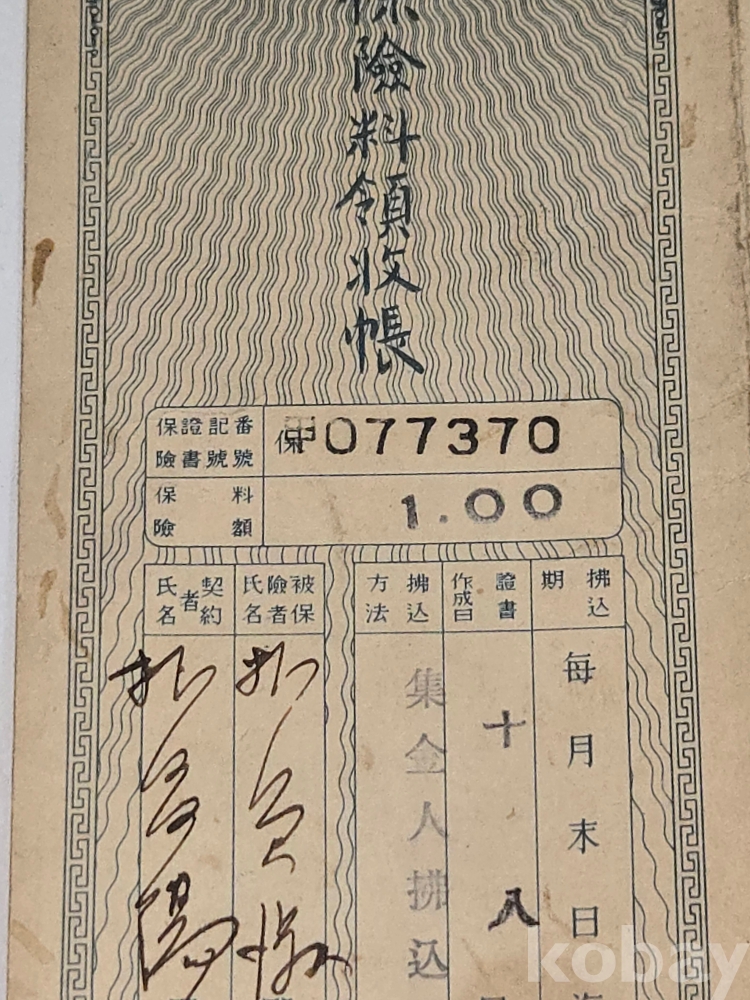 保險料領收帳
保險證書記號番號
保甲077370
保險料額
1.00
拂込期
每月末日
證書作成日
十八
拂込方法
集金人拂込
被保險者氏名
契約者氏名
kobay